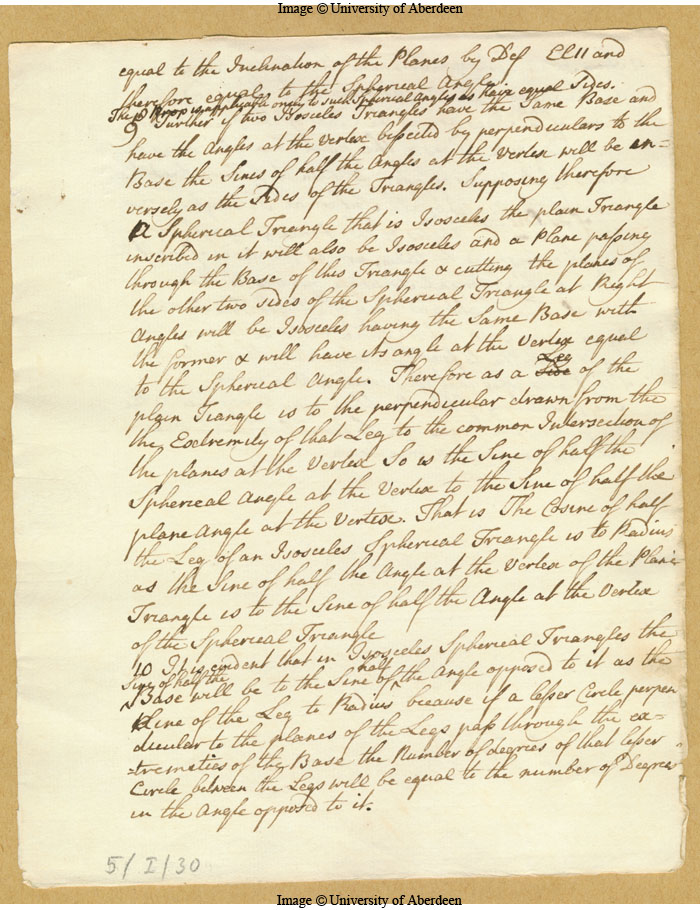 Image © University of Aberdeen
equal to the Inclination of the Planes by Def El 11 and
therefore equal to the Spherical Angle.
The 8 Prop is applicable only to such Spherical Angles as have equal Sides.
9 Further if two Isosceles Triangles have the Same Base and
have the Angles at the Vertex bissected by perpendiculars to the
Base the Sines of half the Angles at the Vertex will be in-
versely as the Sides of the Triangles. Supposing therefore
A Spherical Triangle that is Isosceles the plain Triangle
inscribed in it will also be Isosceles and a Plane passing
through the Base of this Triangle & cutting the planes of
the other two sides of the Spherical Triangle at Right
Angles will be Isosceles having the Same Base with
the former & will have its angle at the Vertex equal
Leg
to the Spherical Angle. Therefore as a Side of the
plain Tiangle is to the perpendicular drawn from the
the Exetremity of that Leg to the common Intersection of
the planes at the Vertex So is the Sine of half the
Spherical Angle at the Vertex to the Sine of half the
plane Angle at the Vertex. That is The Cosine of half
the Leg of an Isosceles Spherical Triangle is to Radius
as the Sine of half the Angle at the Vertex of the Plane
Triangle is to the Sine of half the Angle at the Vertex
of the Spherical Triangle
10 It is evident that in Isosceles Spherical Triangles the
Sine of half the
half
Base will be to the Sine of the Angle opposed to it as the
Sine of the Leg to Radius because if a lesser Circle perpen
dicular to the planes of the Legs pass through the ex-
tremeties of the Base the Number of degrees of that lesser
Circle between the Legs will be equal to the number of Degrees
in the Angle opposed to it.
5/I/30
Image © University of Aberdeen